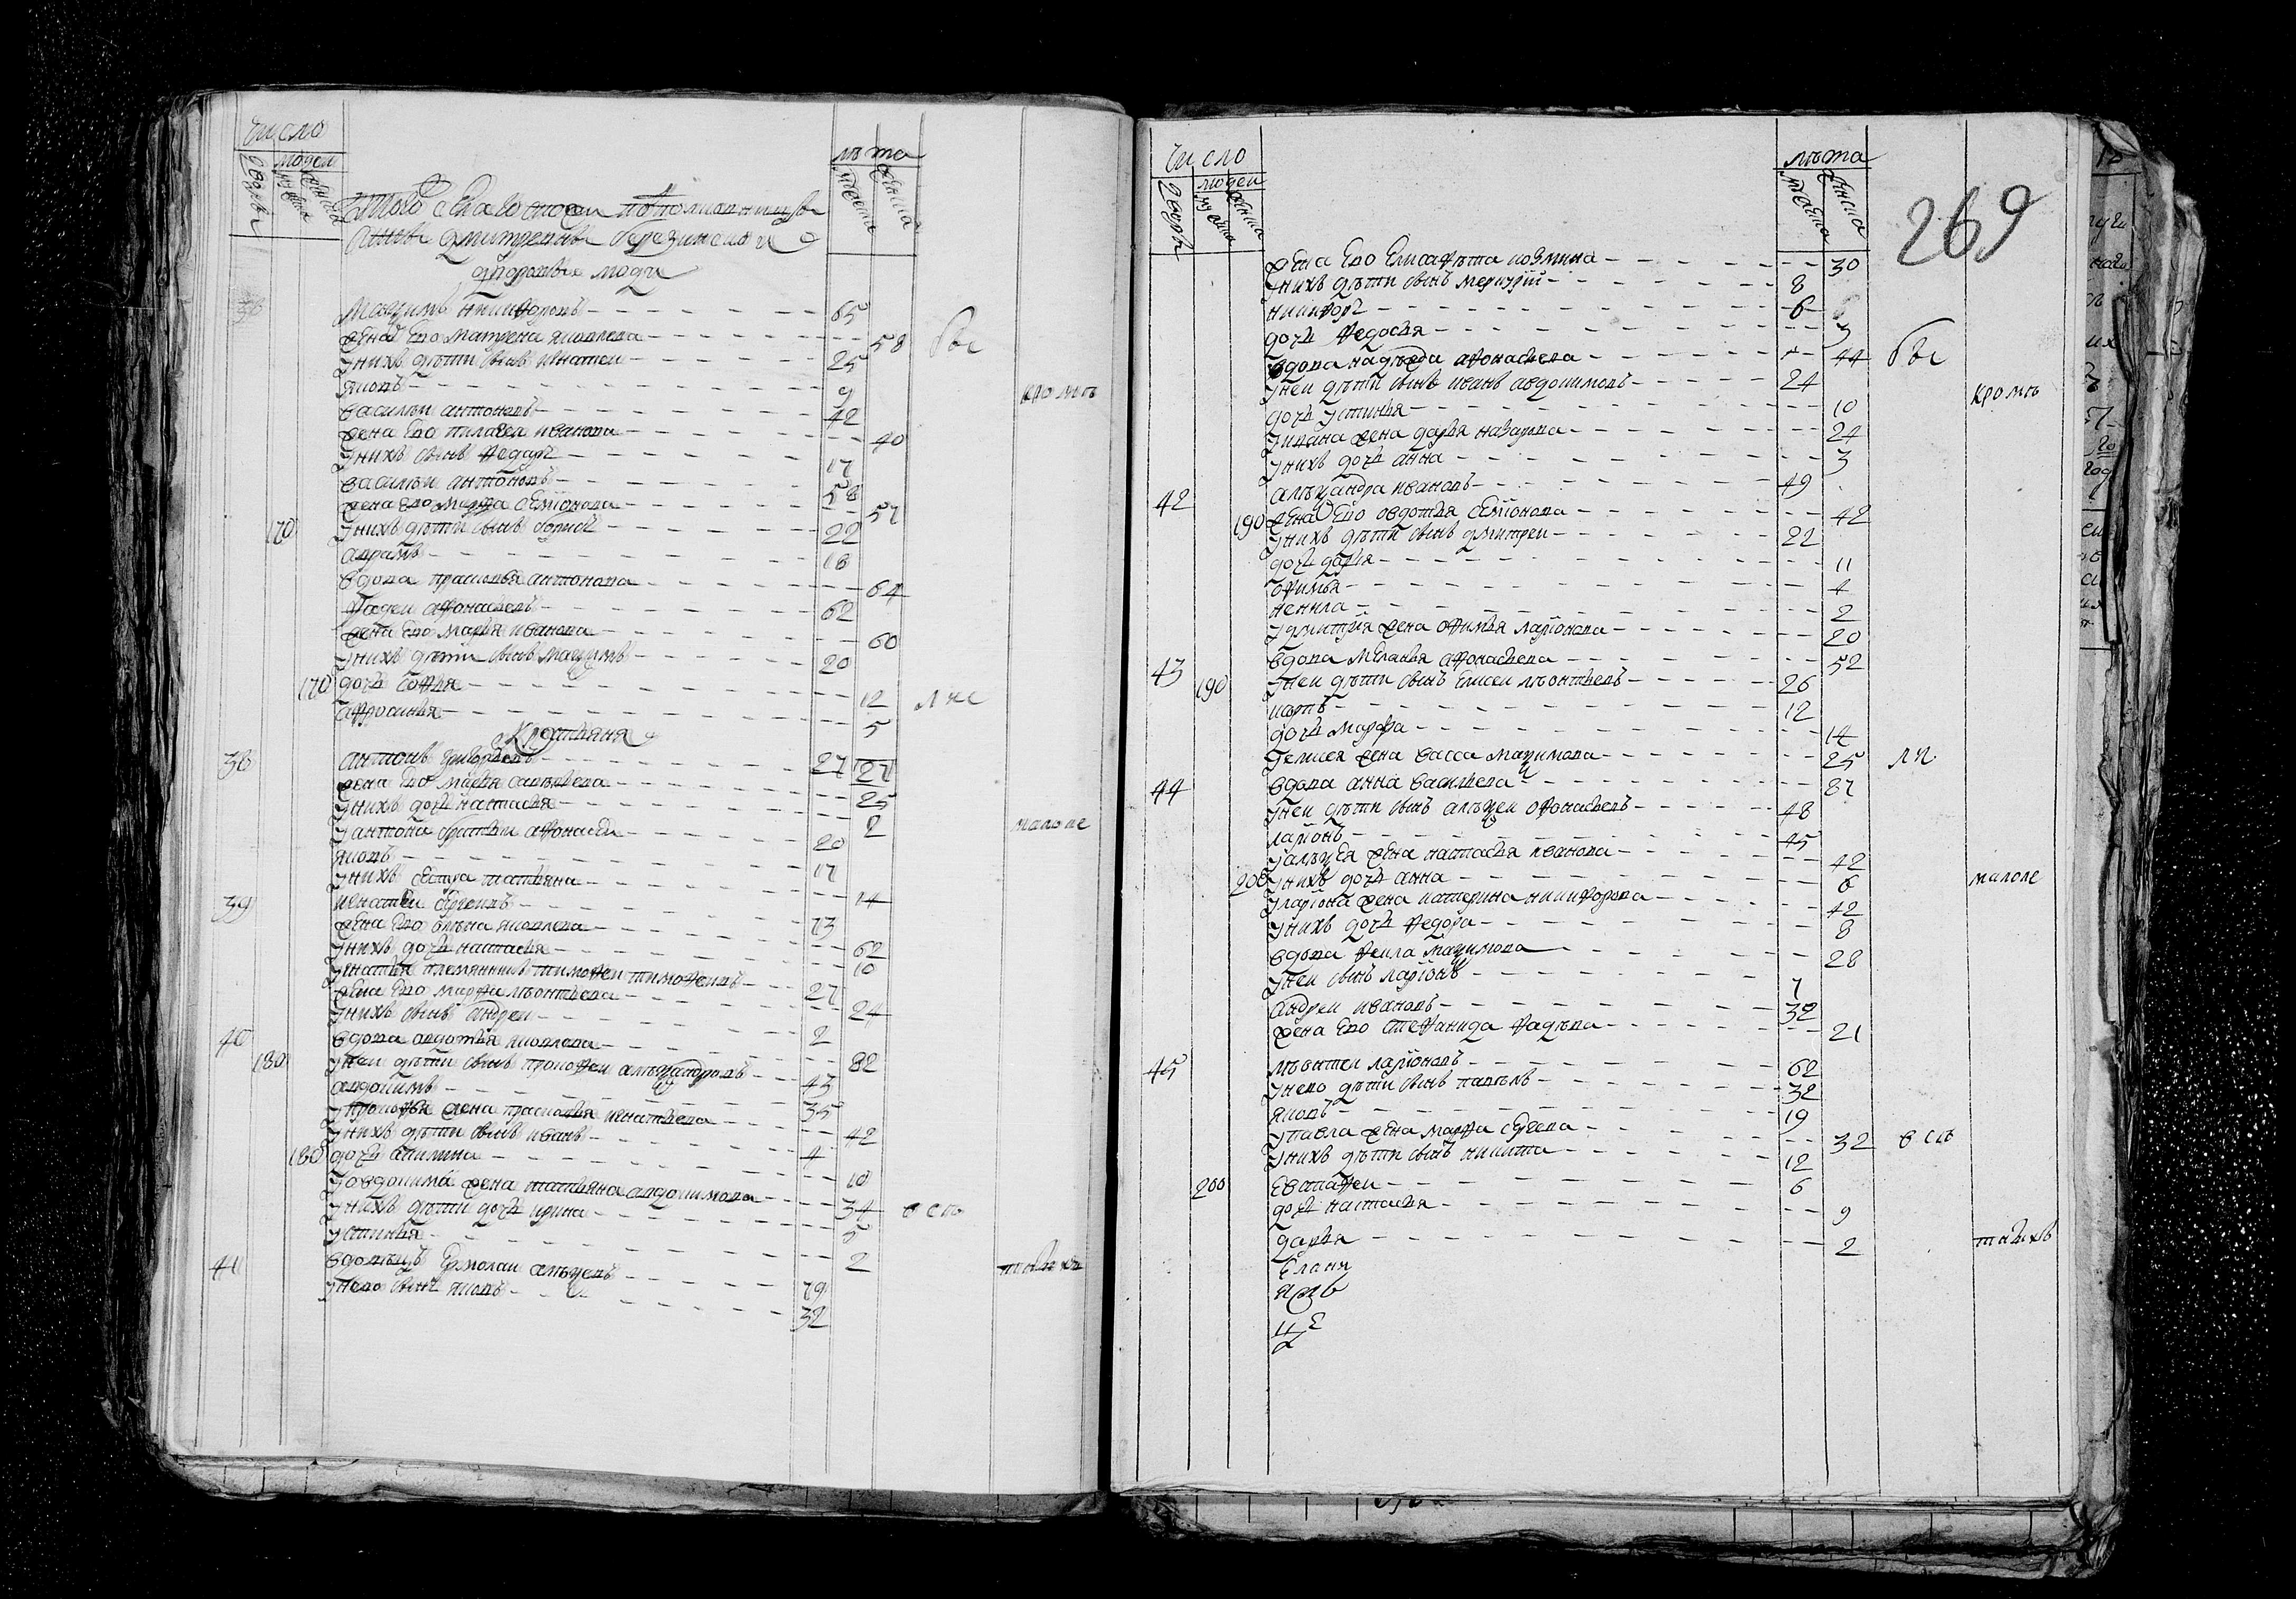 число
лѣта
людеи
дворовъ
мужеска
женска
мужеска
женска
того села господи
дмитревъ березинскои
дворовые люди
Максимъ никифоровъ 65
жена ево матрена яковлева 58 бы
у нихъ дѣти сынъ игнатеи 25
яковъ 9 кромѣ
василеи антоновъ 42
жена ево пилагея иванова 40
у нихъ сынъ федоръ 17
василеи антоновъ 58
жена ево марфа семионова 57
170 у нихъ дѣти сынъ борисъ 22
авраамъ 18
вдова прасковья антонова 64
фадеи афонасьевъ 62
жена ево марья иванова 60
у нихъ дѣти сынъ максимъ 20
170 дочь софья 12 лис
афросинья 5
Крестьяня
38 антонъ григорьевъ 27 27
жена ево марья савельева 25
у нихъ дочь настасья 2
у антона братьи афонасеи 20 малоле
яковъ 17
у нихъ сестра татьяна 14
39 игнатеи сергеевъ 73
жена ево елѣна яковлева 62
у нихъ дочь настасья 10
у игнатья племянникъ тимофеи тимофеивъ 27
жена ево марфа лѣонтьева 24
у нихъ сынъ андреи 2
40 вдова авдотья яковлева 82
180 у неи дѣти сынъ прокофеи алѣксандровъ 43
авдокимъ 35
у прокофья жена прасковья игнатьева 42
у нихъ дѣти сынъ иванъ 4
180 дочь акилина 10
у овдокима жена татьяна авдокимова 34 о сп
у нихъ дѣти дочь ирина 5
устинья 2
41 вдовецъ Ермолаи алѣксеевъ 79 такихъ
у нево сынъ яковъ 32
число
лѣта
людеи
дворовъ
мужеска
женска
мужеска
женска
269
жена ево елисафѣта козмина 30
у нихъ дѣти сынъ меркурiи 8
никифоръ 6
дочь федосья 3
вдова надѣжда афонасьева 44 бы
у неи дѣти сынъ иванъ авдокимовъ 24 кромѣ
дочь устинья 10
у ивана жена дарья назарова 24
у нихъ дочь анна 3
42 алѣксандра ивановъ 49
190 жена ево овдотья семiонова 42
у нихъ дѣти сынъ дмитреи 22
дочь дарья 11
офимья 4
ненила 2
у дмитрiя жена офимья ларiонова 20
43 вдова меланья афонасьева 52
190 у неи дѣти сынъ елисеи лѣонтьевъ 26
карпъ 12
дочь марфа 14
у елисея жена васса максимова 25 ли
44 вдова анна васильева 87
у неи дѣти сынъ алѣксеи офонасьевъ 48
ларiонъ 45
у алѣксея жена настасья иванова 42
200 у нихъ дочь анна 6 малоле
у ларiона жена катерина никифорова 42
у нихъ дочь федора 8
вдова фекла максимова 28
у неи сынъ ларiонъ 7
андреи ивановъ 32
жена ево стефанида фадѣева 21
45 лѣонтеи ларiоновъ 62
у нево дѣти сынъ павелъ 32
яковъ 19
у павла жена марфа сергеева 32 о сп
у нихъ дѣти сынъ никита 12
200 евстафеи 6
дочь настасья 9
дарья 2 такихъ